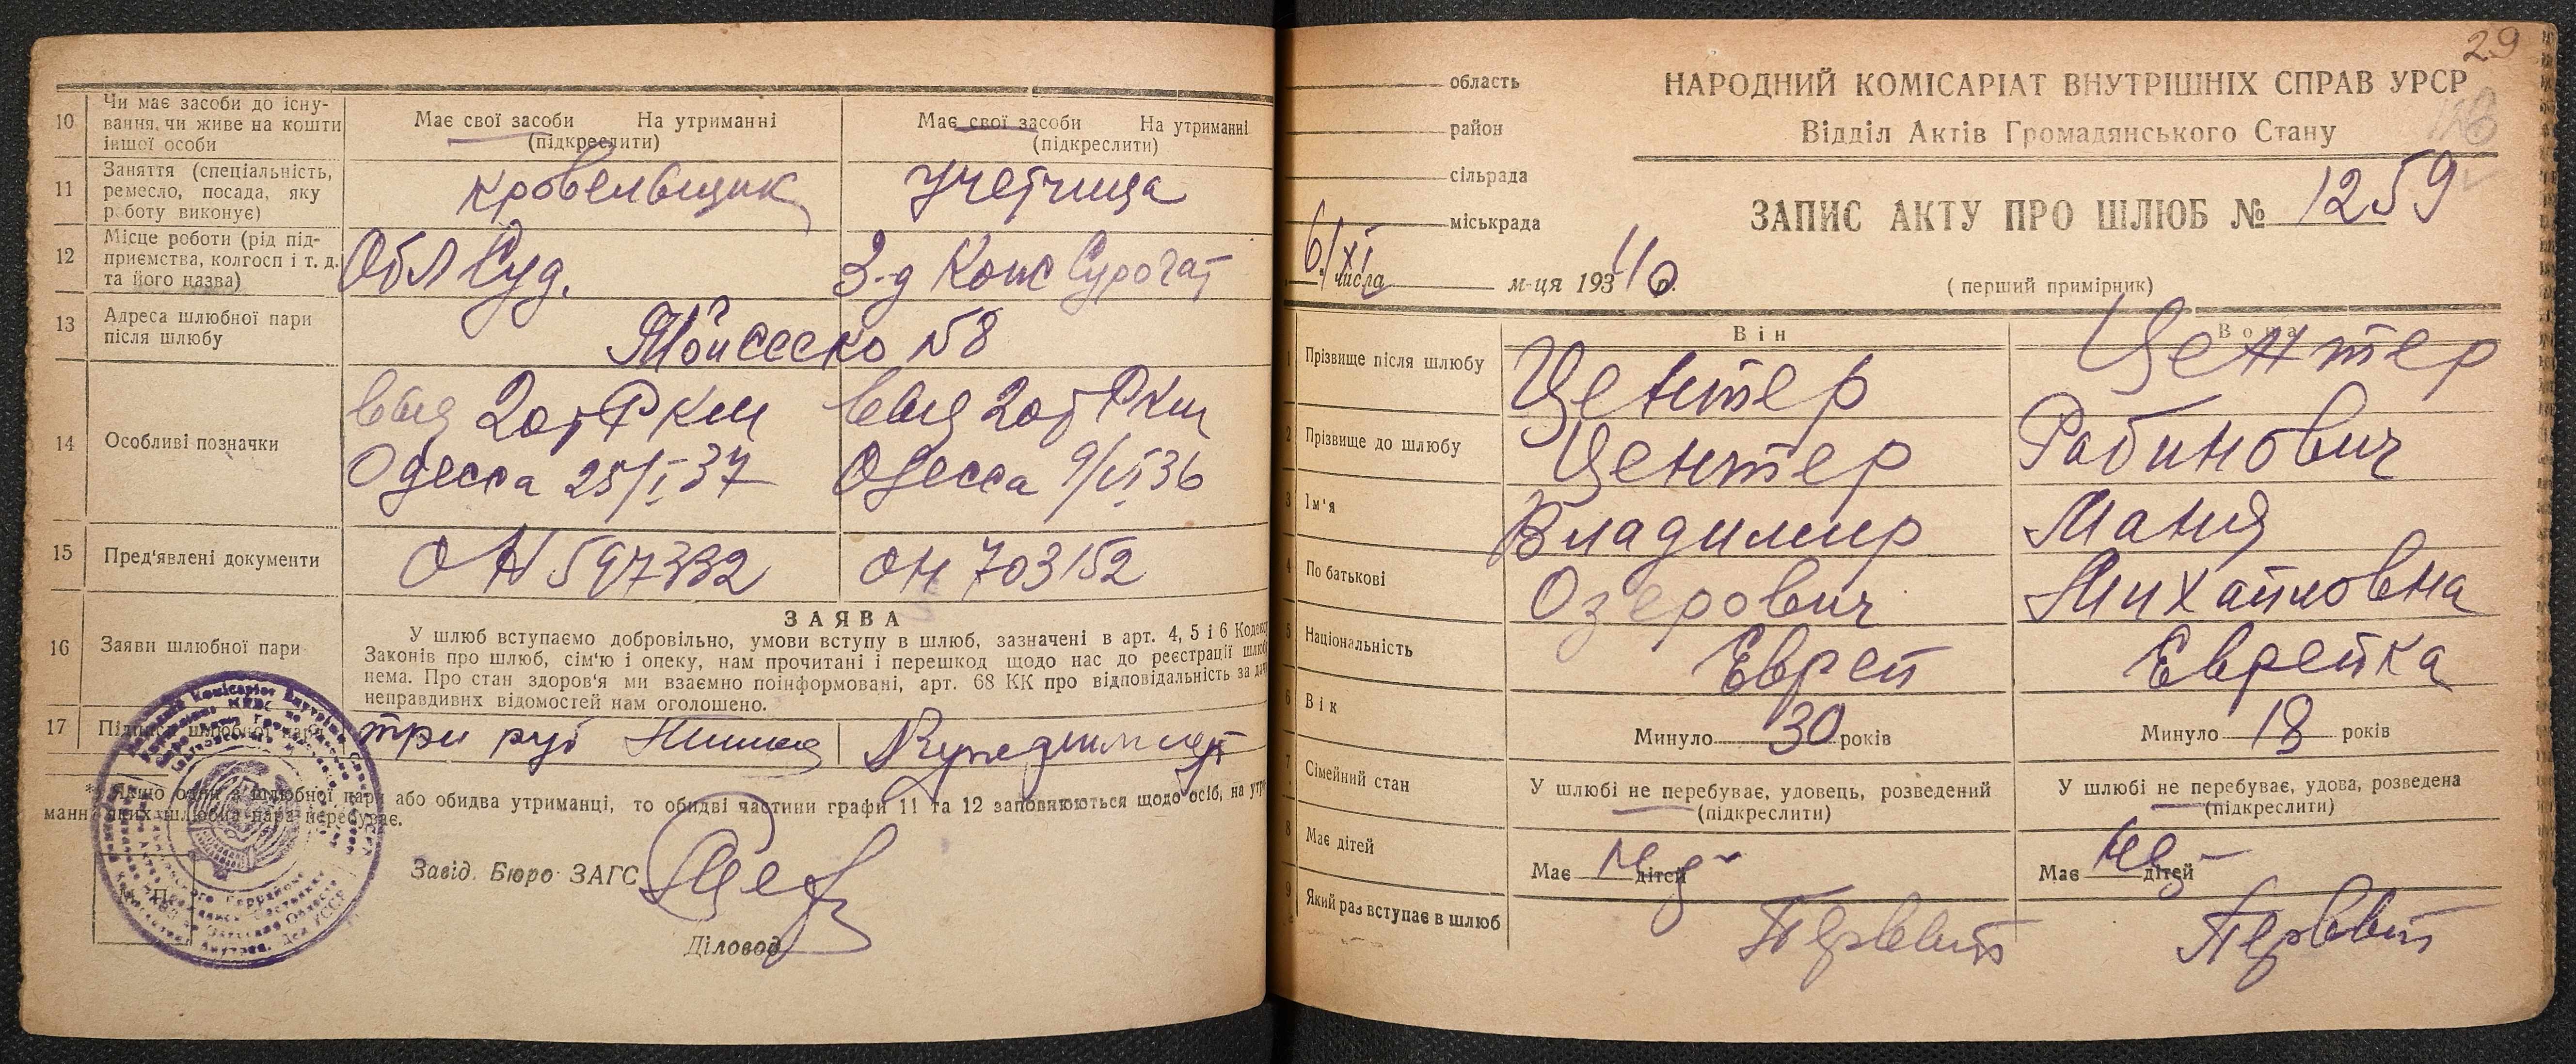 10 Чи має засоби до існу-
вання, чи живе на кошти
іншої особи
Має свої засоби На утриманні
(підкреслити)
Має свої засоби На утриманні
(підкреслити)
11 Заняття (спеціальність,
ремесло, посада, яку
роботу виконує)
Кровельщик
Учетчица
12 Місце роботи (рід під-
приємства, колгосп і т. д.
та його назва)
Обл Суд.
З-д
13 Адреса шлюбної пари
після шлюбу
№8
14 Особливі позначки
20
Одесса 25/I 37
20
Одесса 9/VI 36
15 Пред'явлені документи
ОН 597332
ОН 703152
16 Заяви шлюбної пари
ЗАЯВА
У шлюб вступаємо добровільно, умови вступу в шлюб, зазначені в арт. 4, 5 і 6 Кодексу
Законів про шлюб, сім'ю і опеку, нам прочитані і перешкод щодо нас до реєстрації шлюбу
нема. Про стан здоров'я ми взаємно поінформовані, арт. 68 КК про відповідальність за дачу
неправдивих відомостей нам оголошено.
17 Підписи шлюбної пари
три руб
* Якщо один з шлюбної пари або обидва утриманці, то обидві частини графи 11 та 12 заповнюються щодо осіб, на утри-
манні яких шлюбна пара перебуває.
Завід. Бюро ЗАГС
Діловод
М. П.
29
область
район
сільрада
міськрада
6/XI числа м-ця 1940 р.
НАРОДНИЙ КОМІСАРІАТ ВНУТРІШНІХ СПРАВ УРСР
Відділ Актів Громадянського Стану
ЗАПИС АКТУ ПРО ШЛЮБ № 1259
(перший примірник)
Він Вона
1 Прізвище після шлюбу Центер Центер
2 Прізвище до шлюбу Центер Рабинович
3 Ім'я Владимир Маня
4 По батькові Озерович Михайловна
5 Національність Еврей Еврейка
6 Вік Минуло 30 років Минуло 18 років
7 Сімейний стан
У шлюбі не перебуває, удовець, розведений
(підкреслити)
У шлюбі не перебуває, удова, розведена
(підкреслити)
8 Має дітей Має нет дітей Має нет дітей
9 Який раз вступає в шлюб Первый Первый